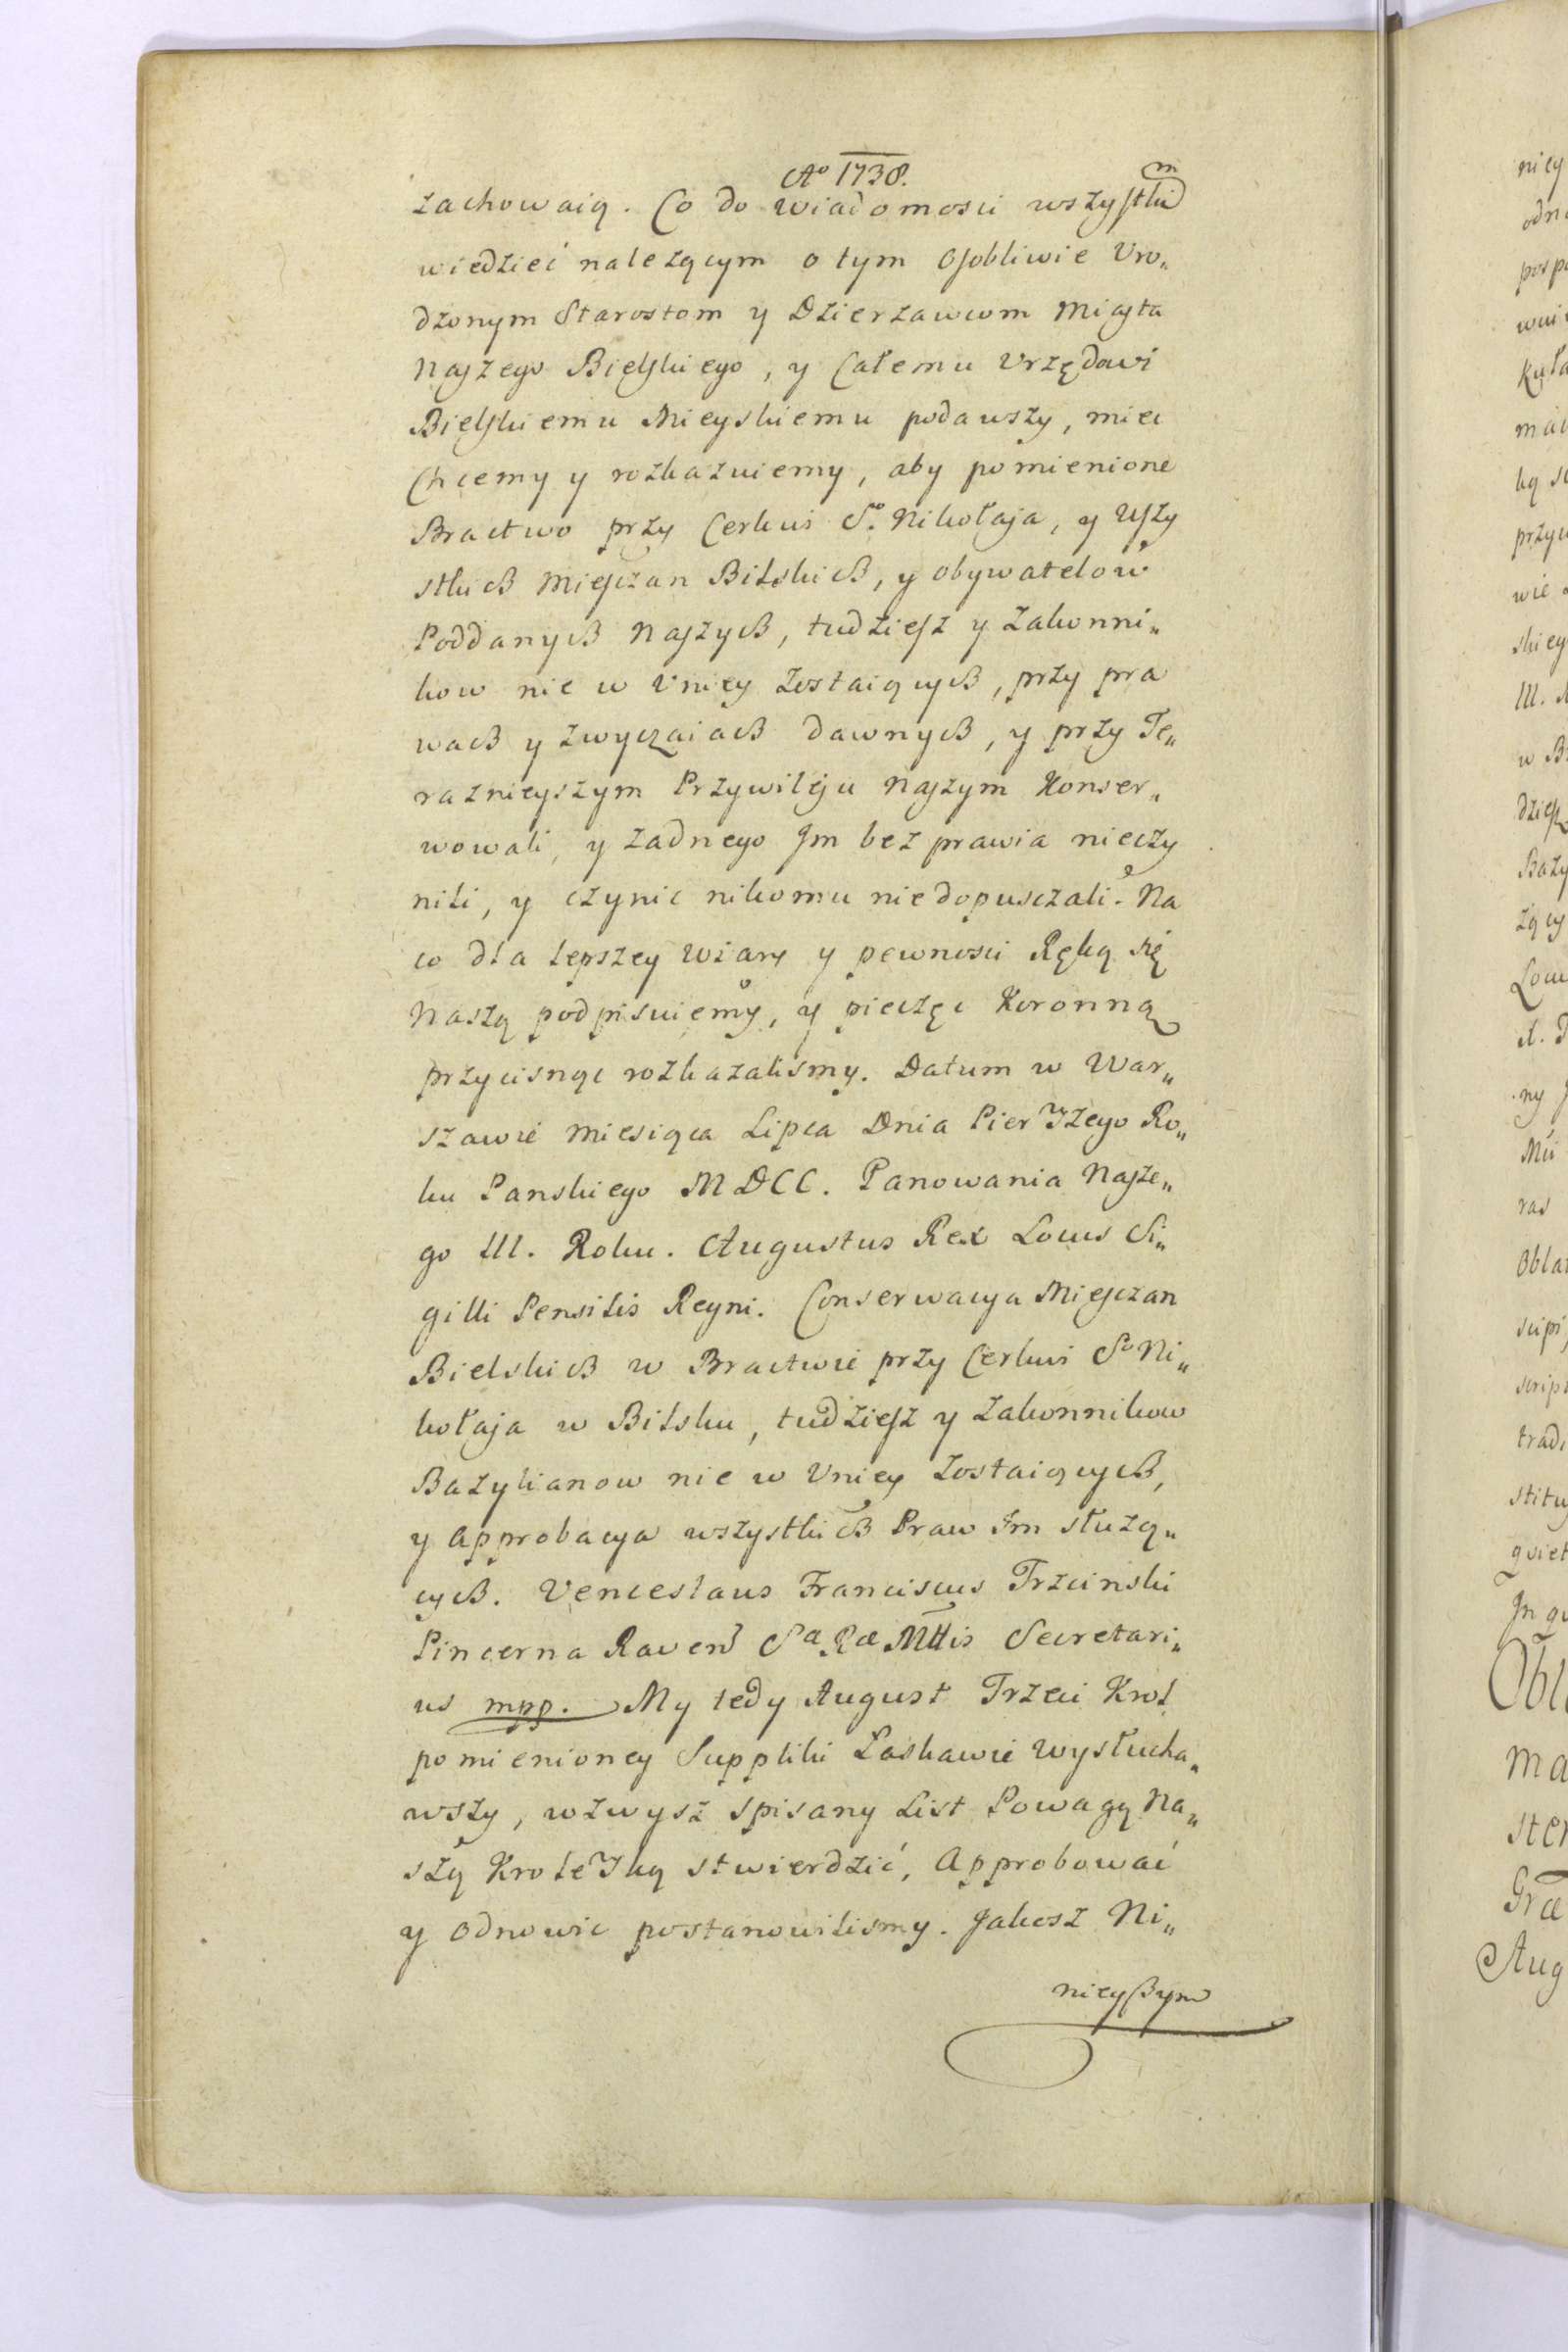 Ao 1738.
zachowaią. Co do wiadomosci wszystkim
wiedzieć nalezącym o tym osobliwie Vro„
dzonym Starostom y Dzierzawcom Miasta
Naszego Bielskiego, y Całemu Vrzędowi
Bielskiemu Mieyskiemu podawszy, miec
Chcemy y rozkazuiemy, aby pomienione
Bractwo przy Cerkwi So. Nikołaja, y Wszy
stkich Miesczan Bilskich, y obywatelow
Poddanych Naszych, tudziesz y Zakonni„
kow nie w Vniey Zostaiących, przy pra
wach y zwyczaiach dawnych, y przy Te„
raznieyszym Przywileju Naszym Konser„
wowali, y zadnego Jm bezprawia nieczy
nili, y czynic nikomu niedopusczali. Na
co dla lepszey wiary y pewnosci Ręką się
Naszą podpisuiemy, y pieczęc Koronną
przycisnąc rozkazalismy. Datum w War„
szawie Miesiąca Lipca Dnia Pierszego Ro„
ku Panskiego MDCC. Panowania Nasze„
go III. Roku. Augustus Rex Locus Si„
gilli Pensilis Regni. Conserwacya Miesczan
Bielskich w Bractwie przy Cerkwi So Ni„
kołaja w Bilsku, tudziesz y Zakonnikow
Bazylianow nie w Vniey Zostaiących,
y Approbacya wszystkich Praw Jm słuzą„
cych. Venceslaus Franciscus Trzcinski
Pincerna Raven Sa Ræ Mttis Secretari„
us mpp. My tedy August Trzeci Krol
pomienioney Suppliki Łaskawie wysłucha„
wszy, wzwysz spisany List Powagą Na„
szą Kroleską stwierdzić, Approbować
y odnowic postanowilismy. Jakosz Ni„
nieyszym